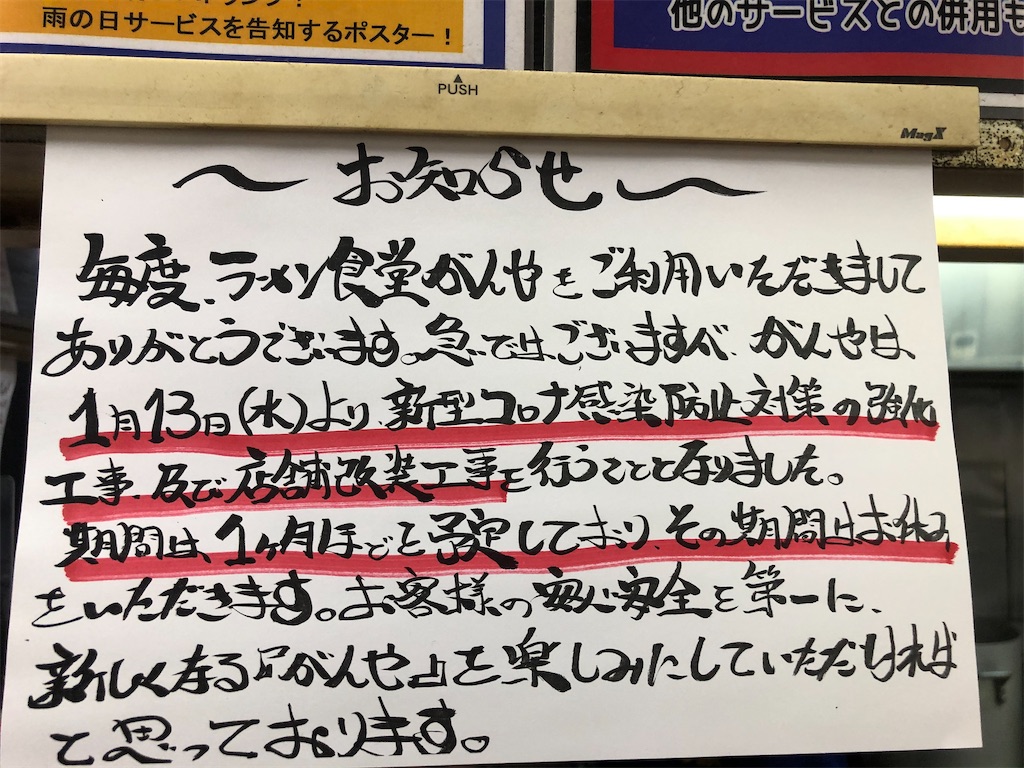 雨の日サービスを告知するポスター！
他のサービスとの併用も
PUSH
MagX
〜お知らせ〜
毎度、ラーメン食堂がんやをご利用いただきまして
ありがとうございます。急ではございますが、がんやは、
1月13日(水)より、新型コロナ感染防止対策の強化
工事、及び店舗改装工事を行うこととなりました。
期間は、1ヶ月ほどと予定しており、その期間はお休み
をいただきます。お客様の安心安全を第一に、
新しくなる『がんや』を楽しみにしていただければ
と思っております。